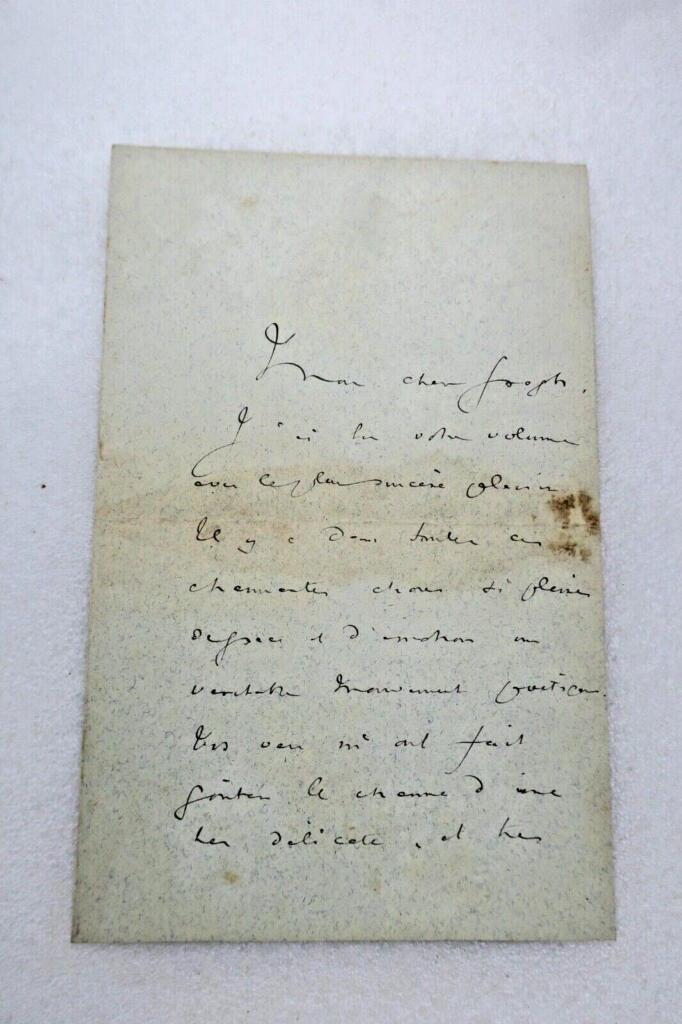 Mon cher
J'ai lu votre volume
avec le plus sincère plaisir
Il y a dans toutes ces
charmantes choses si pleines
de grace et d'émotion un
veritable mouvement poétique.
Vos vers m'ont fait
goûter le charme d'une
très délicate, et très